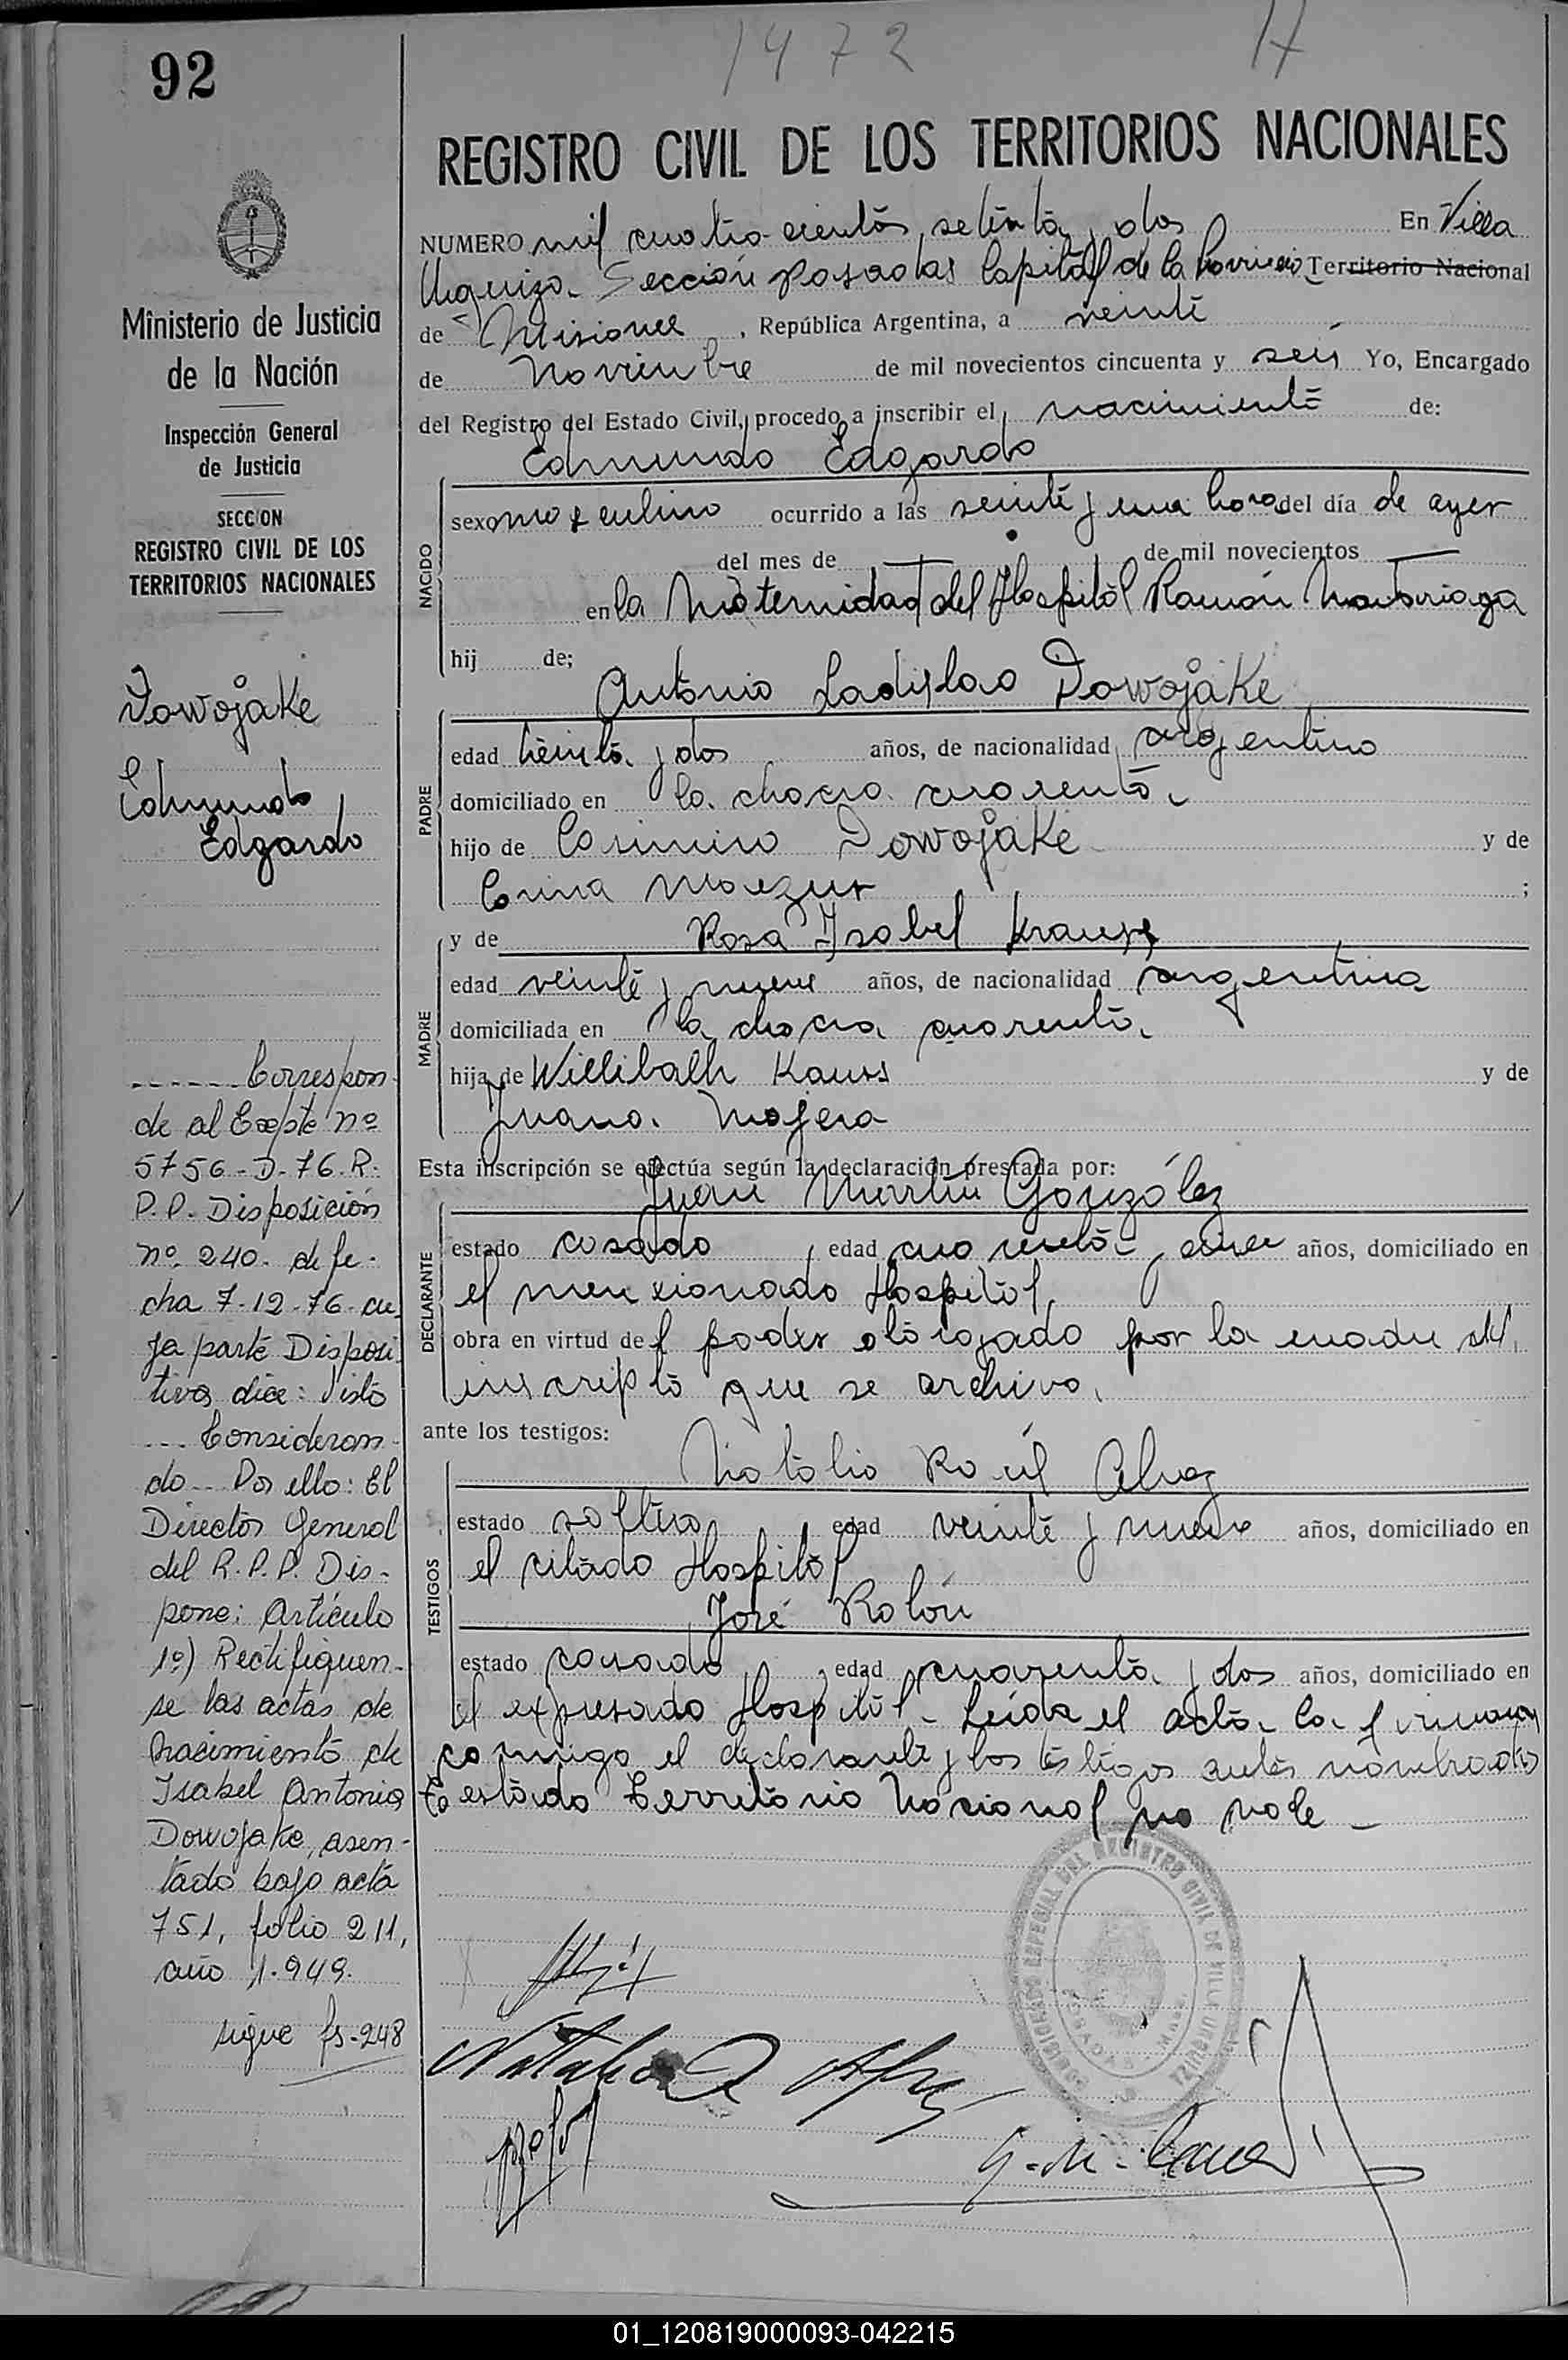 1472
17
92
REGISTRO CIVIL DE LOS TERRITORIOS NACIONALES
NUMERO mil cuatro cientos setenta y dos En Villa
Urquiza. Sección Posadas Capital de la Provincia Territorio Nacional
de Misiones, República Argentina, a veinte
de Noviembre de mil novecientos cincuenta y seis Yo, Encargado
del Registro del Estado Civil, procedo a inscribir el nacimiento de:
Edmundo Edgardo
NACIDO
sexo masculino ocurrido a las veinte y una horas del día de ayer
del mes de — de mil novecientos —
en la Maternidad del Hospital Ramón Madariaga
hij de;
Antonio Ladislao Dowojake
PADRE
edad treinta y dos años, de nacionalidad argentino
domiciliado en la chacra cuarenta.
hijo de Casimiro Dowojake y de
;
y de Rosa Isabel Krauss
MADRE
edad veinte y nueve años, de nacionalidad argentina
domiciliada en la chacra cuarenta.
hija de Willibalh Kauss y de
Juana Mojera
Esta inscripción se efectúa según la declaración prestada por:
Juan Martín González
DECLARANTE
estado casado, edad cuarenta y años, domiciliado en
el mencionado Hospital,
obra en virtud del poder otorgado por la madre del
inscripto que se archiva.
ante los testigos:
Natalio Raúl
TESTIGOS
estado soltero edad veinte y nueve años, domiciliado en
el citado Hospital
José Rolón
estado casado, edad cuarenta y dos años, domiciliado en
el expresado Hospital. Leída el acta la firmaron
conmigo el declarante y los testigos antes nombrados
Testado Territorio Nacional no vale —
Ministerio de Justicia
de la Nación
Inspección General
de Justicia
SECCION
REGISTRO CIVIL DE LOS
TERRITORIOS NACIONALES
Dowojake
Edmundo
Edgardo
------ Correspon-
de al Expte nº
5756-D-76-R.
P.P. Disposición
nº. 240. de fe-
cha 7-12-76- cu-
ya parte Disposi-
tiva dice: Visto
... Consideran-
do... Por ello: El
Director General
del R.P.P. Dis-
pone: Artículo
1º) Rectifiquen-
se las actas de
nacimiento de
Isabel Antonia
Dowojake, asen-
tado bajo acta
751, folio 211,
año 1.949.
sigue fs-248
ESPECIAL DEL REGISTRO CIVIL DE VILLA URQUIZA
POSADAS
Natalio R
01_120819000093-042215